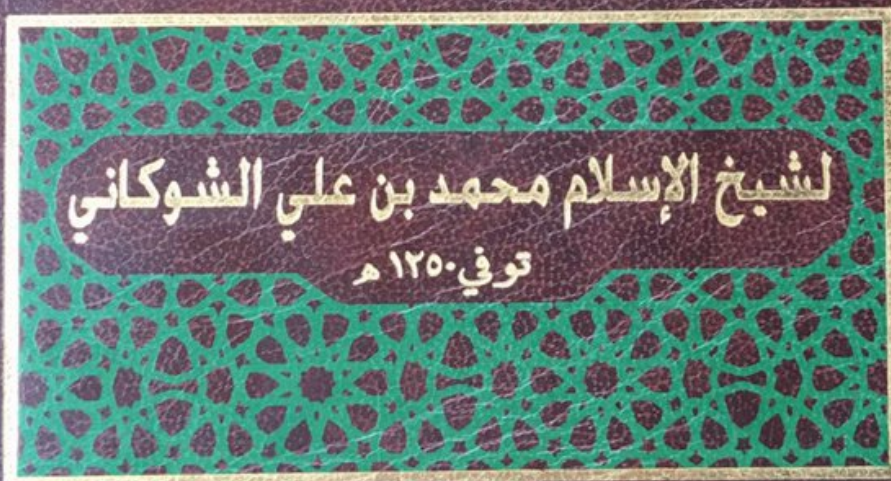 لشيخ الإسلام محمد بن علي الشوكاني
توفي ١٢٥٠ هـ